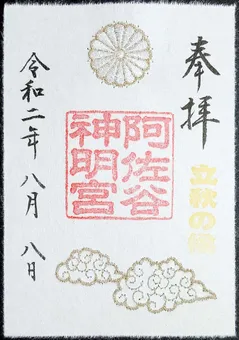 奉拝
立秋の祭
阿佐谷
神明宮
令和二年 八月 八日